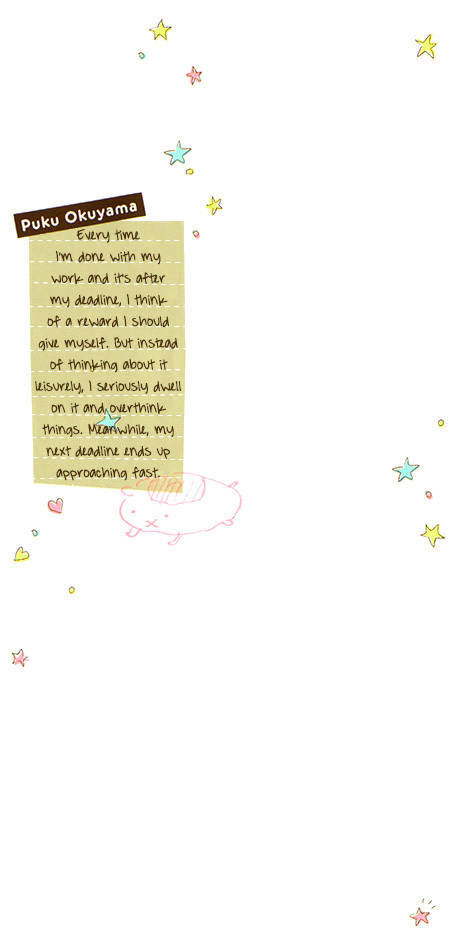 Puku Okuyama
Every time
I'm done with my
work and it's after
my deadline, I think
of a reward I should
give myself. But instead
of thinking about it
leisurely, I seriously dwell
on it and overthink
things. Meanwhile, my
next deadline ends up
approaching fast.